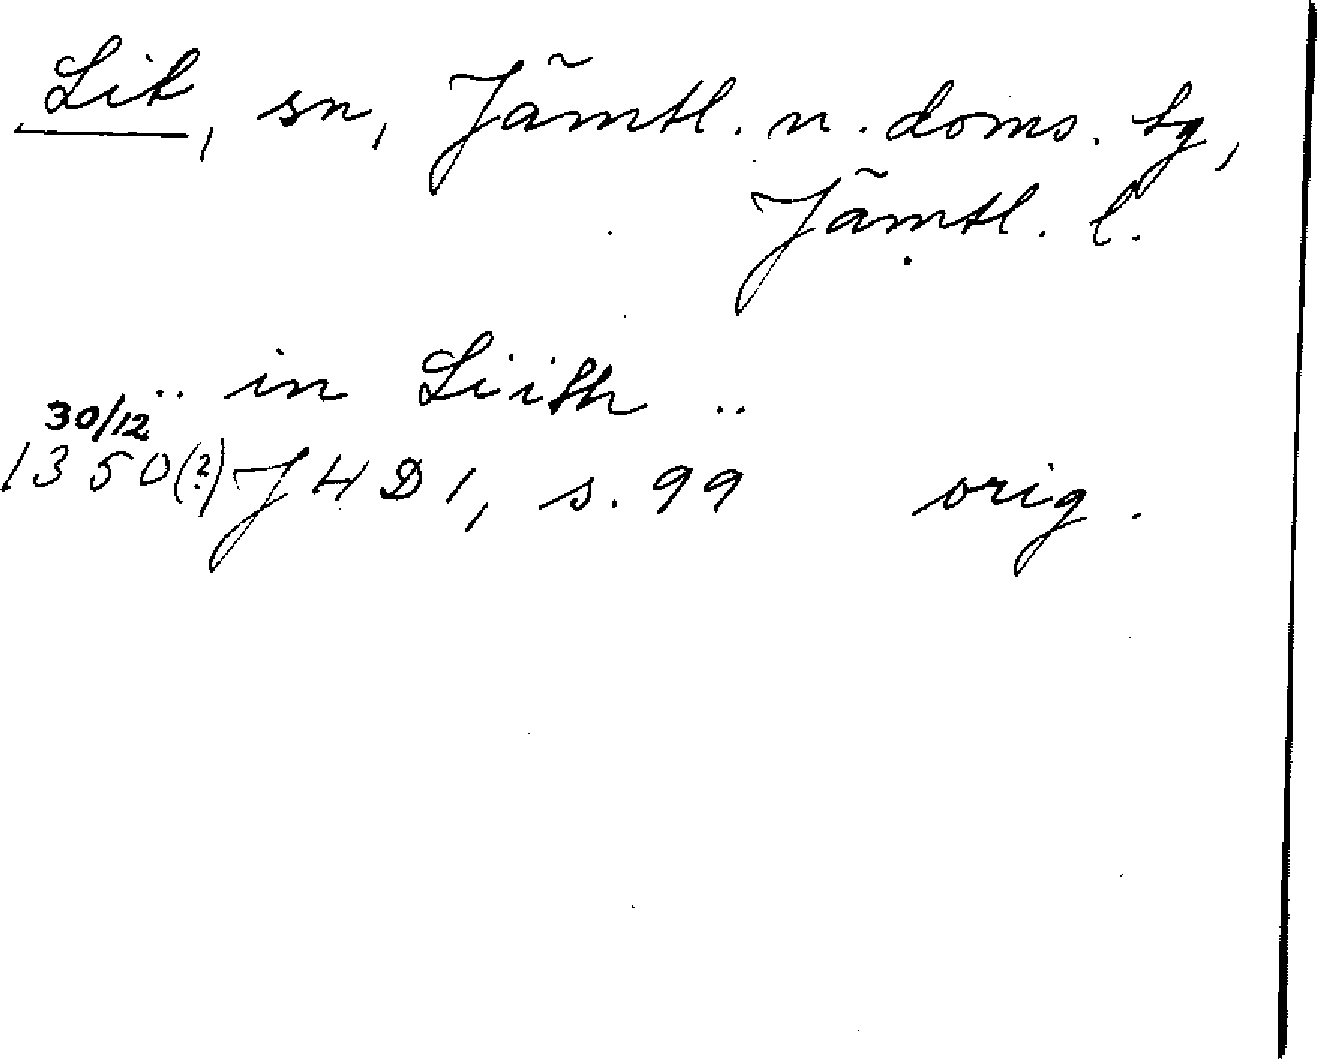 Lit, sn, Jämtl. n. doms. tg,
Jämtl. l.
.. in Liith ..
30/12
1350(?) JHD 1, s. 99 orig.